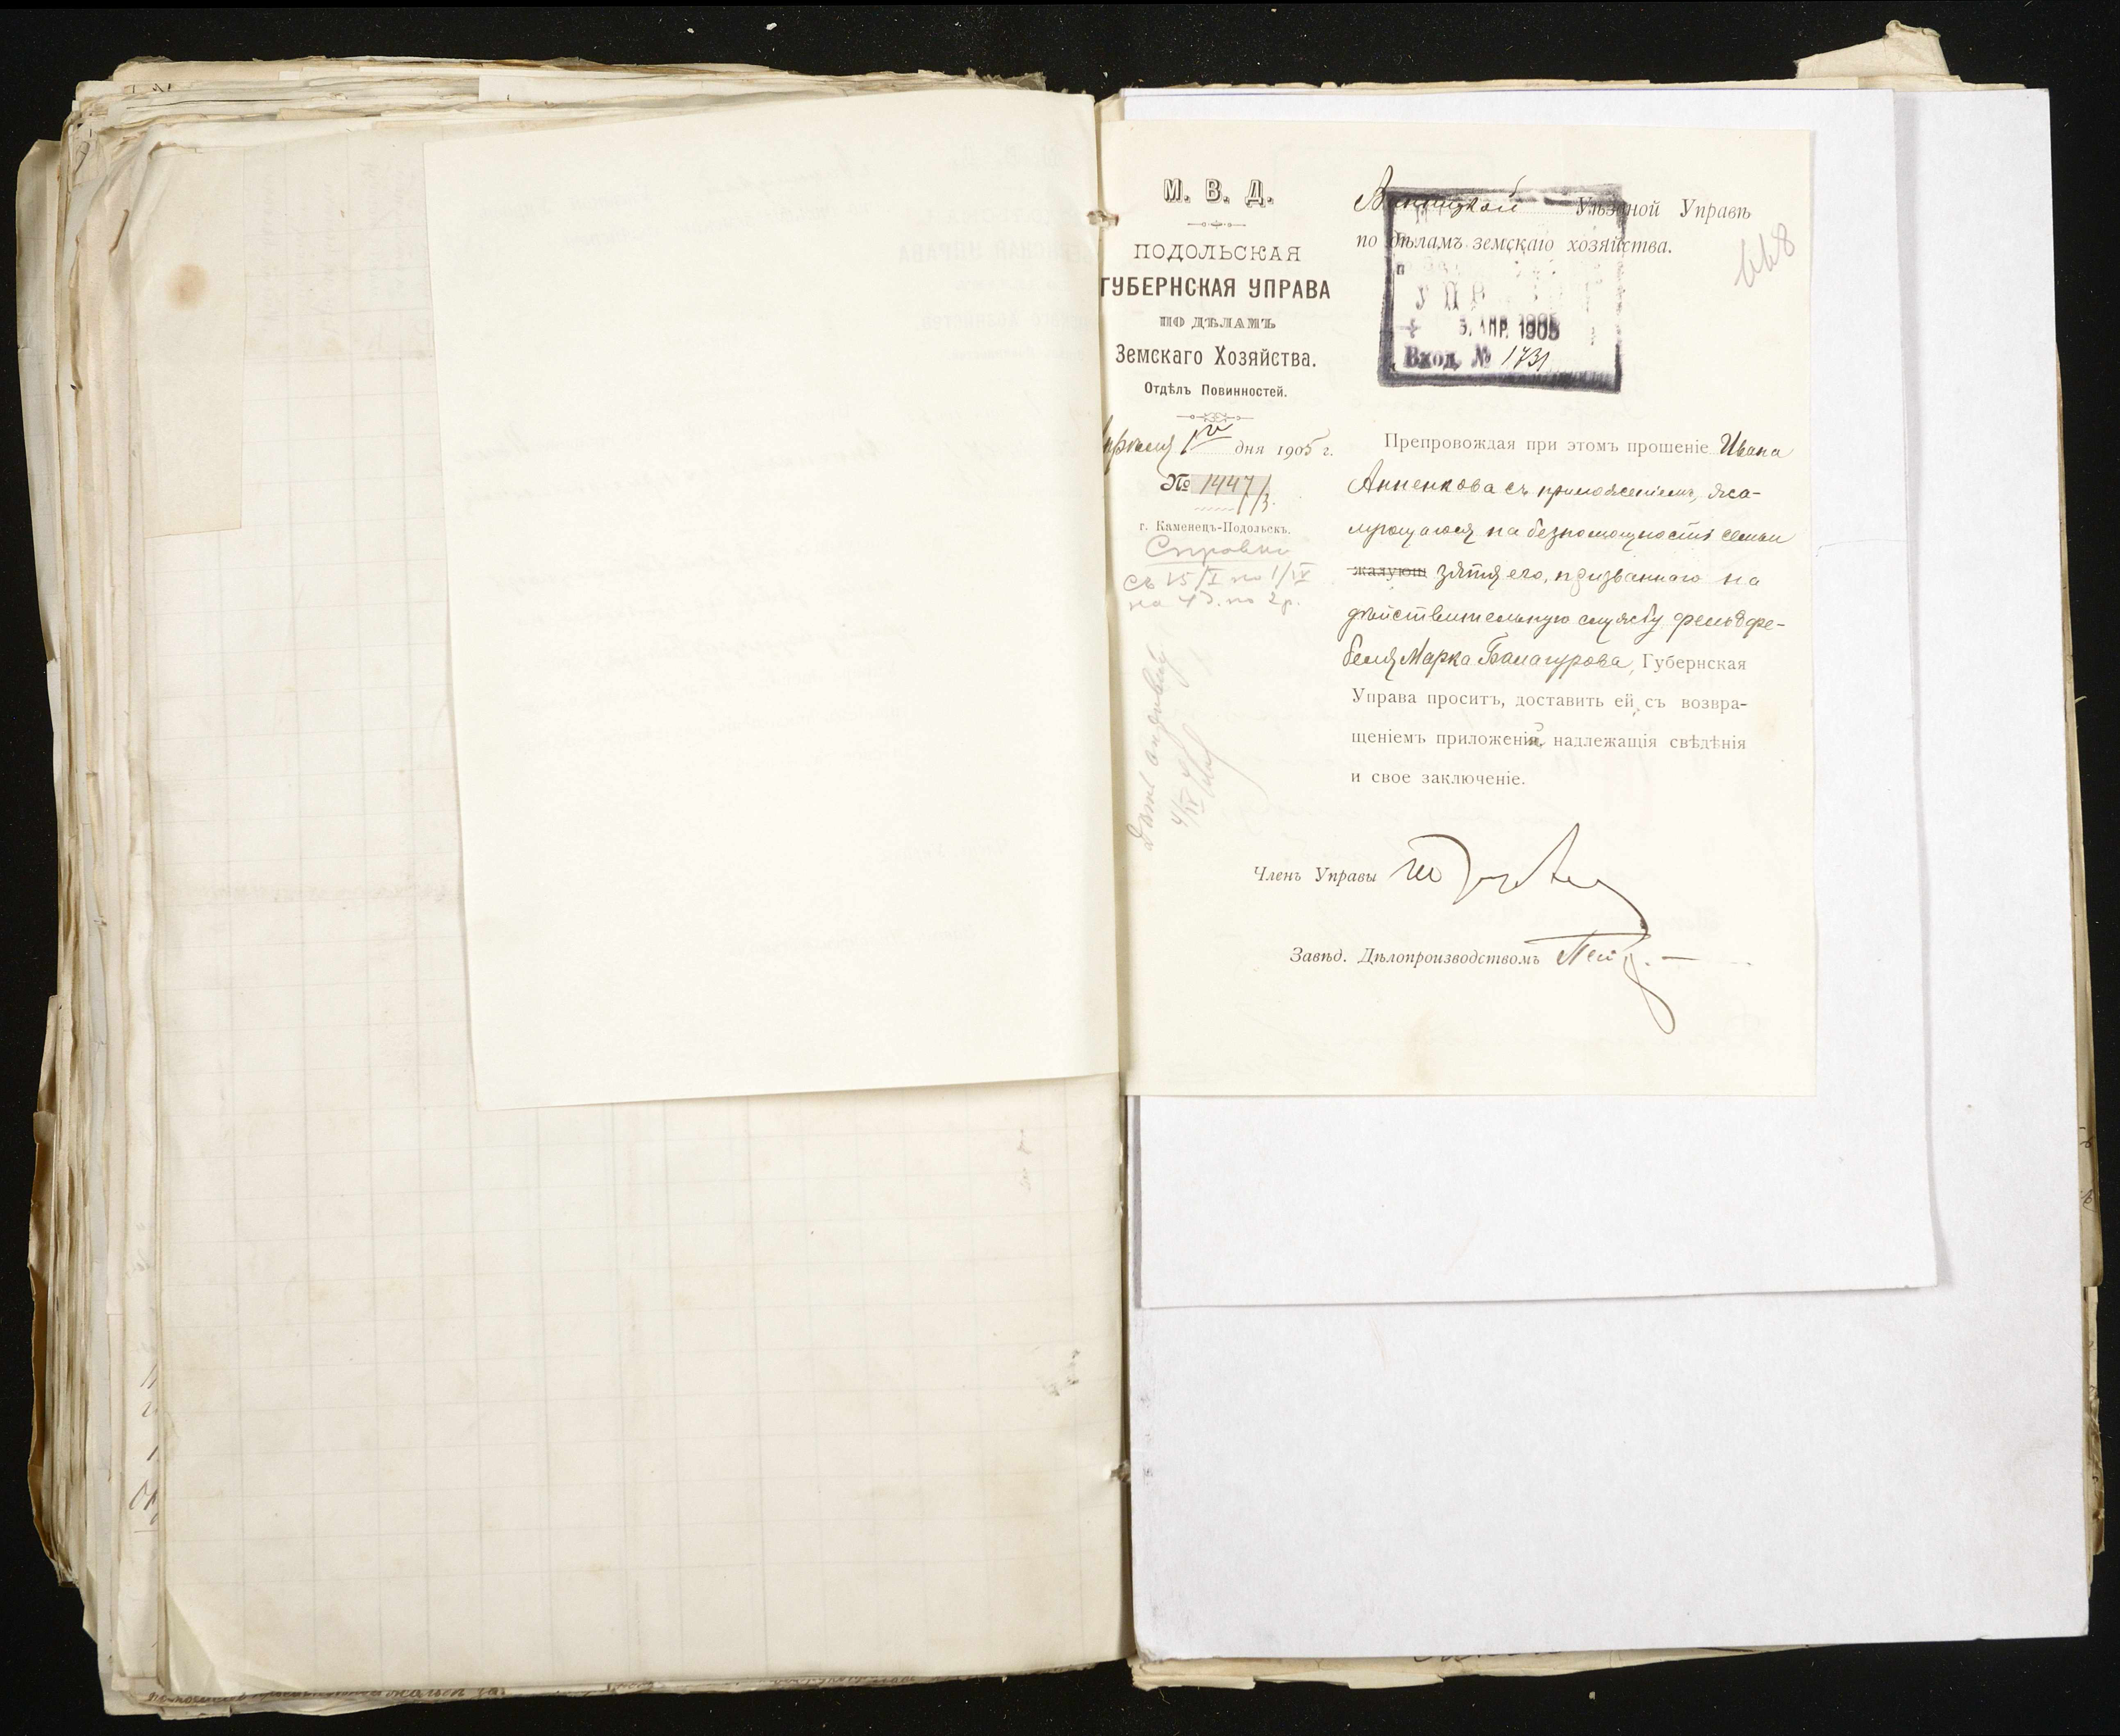 М. В. Д.
ПОДОЛЬСКАЯ
ГУБЕРНСКАЯ УПРАВА
ПО ДѢЛАМЪ
Земскаго Хозяйства.
Отдѣлъ Повинностей.
Апрѣля 1го дня 1905 г.
№ 1447/3.
г. Каменецъ-Подольскъ.
Справки
съ 15/I по 1/IV
на 4 д. по 2 р.
4/IV
Винницкой Уѣздной Управѣ
по дѣламъ земскаго хозяйства.
668
АПР. 1905
Вход. № 1731
Препровождая при этомъ прошеніе Ивана
Анненкова съ приложеніемъ, жа-
лующагося на безпомощность семьи
жалующ зятя его, призваннаго на
дѣйствительную службу фельдфе-
беля Марка Балагурова, Губернская
Управа проситъ, доставить ей, съ возвра-
щеніемъ приложенія, надлежащія свѣдѣнія
и свое заключеніе.
Членъ Управы
Завѣд. Дѣлопроизводствомъ